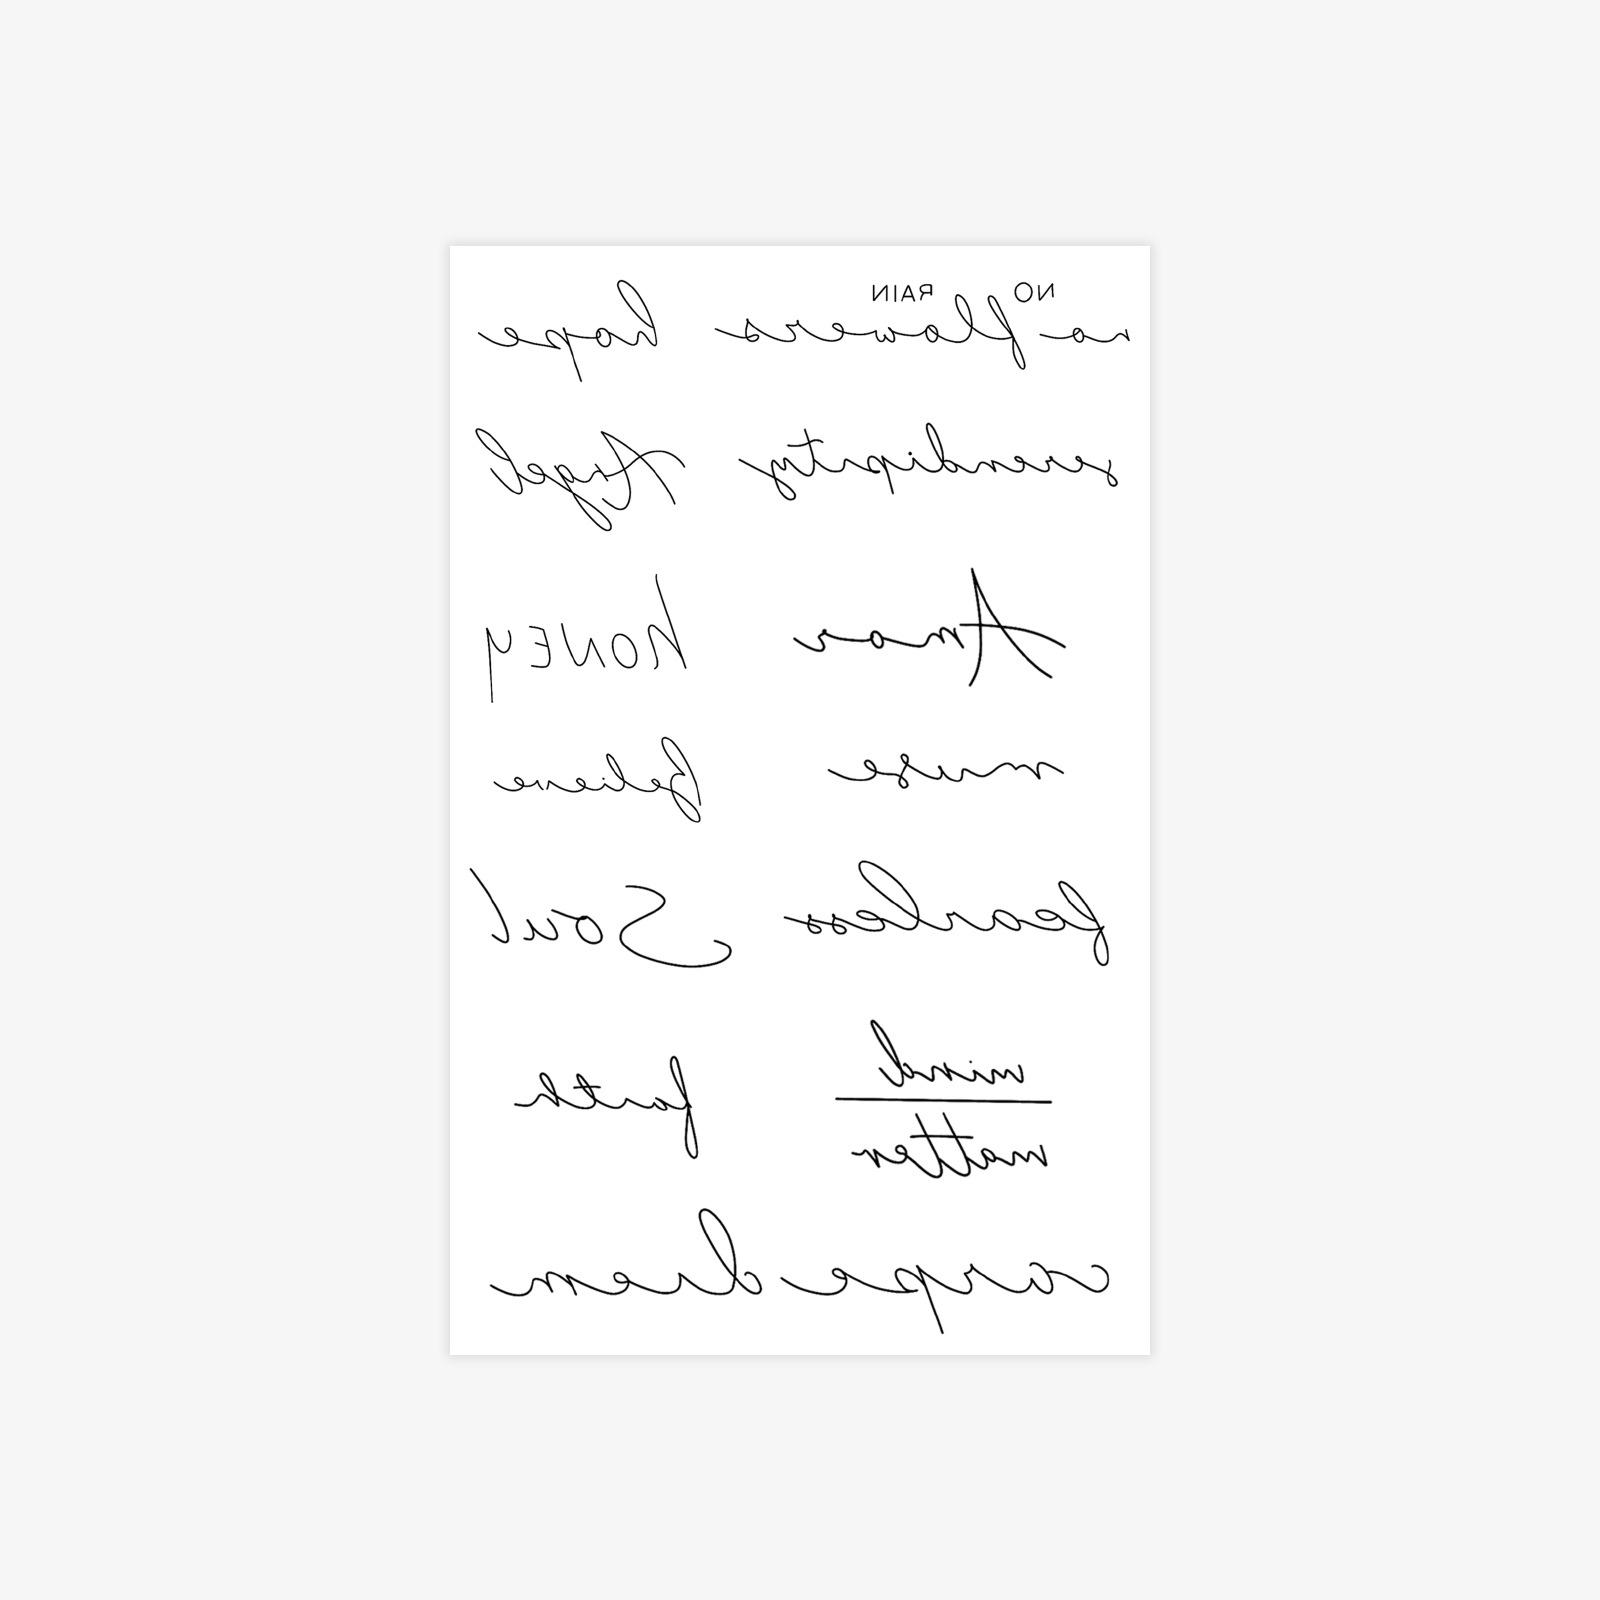 NO RAIN
no flowers
hope
serendipity
Angel
Amor
honey
muse
believe
fearless
Soul
mind
matter
faith
carpe diem